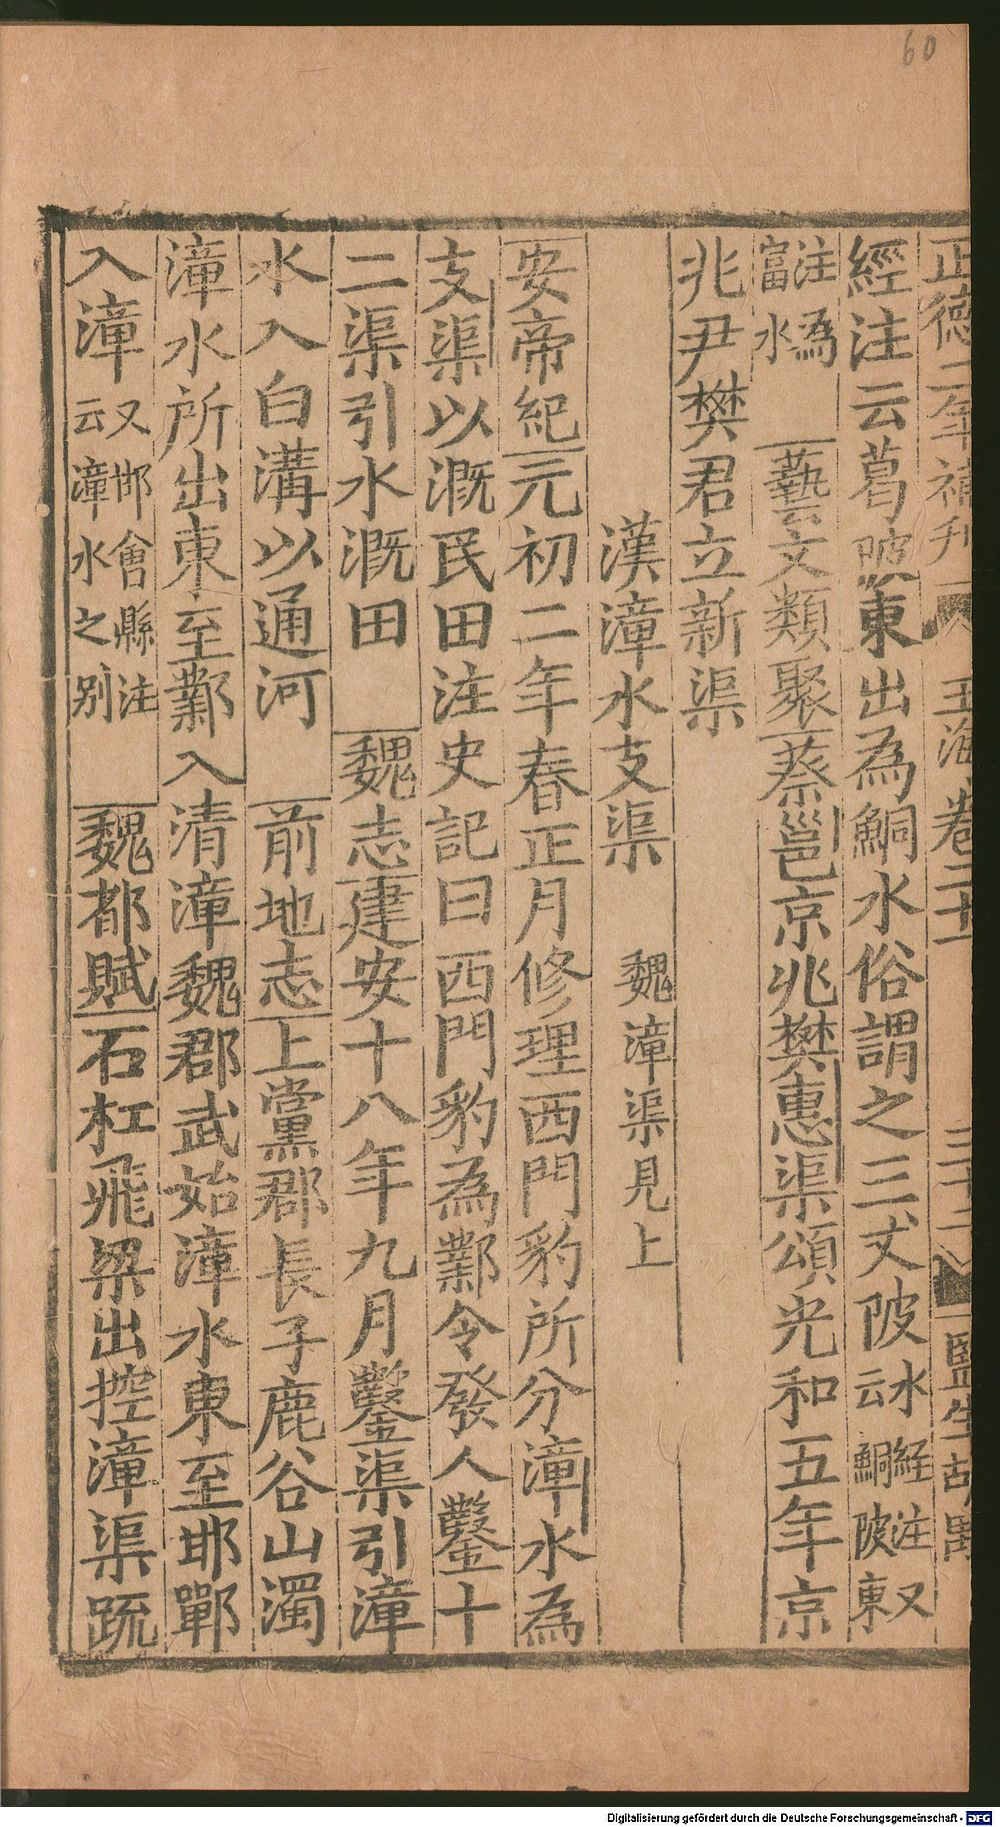 60
正德二年補刋 玉海卷二十 三十二 監生胡
經注云葛陂東出為鮦水俗謂之三丈陂水經注又云鮦陂東
注為富水 藝文類聚蔡邕京兆樊惠渠頌光和五年京
兆尹樊君立新渠
漢漳水支渠 魏漳渠見上
安帝紀元初二年春正月修理西門豹所分漳水為
支渠以溉民田注史記曰西門豹為鄴令發人鑿十
二渠引水溉田 魏志建安十八年九月鑿渠引漳
水入白溝以通河 前地志上黨郡長子鹿谷山濁
漳水所出東至鄴入清漳魏郡武始漳水東至邯鄲
入漳又邯會縣注云漳水之别 魏都賦石杠飛梁出控漳渠䟽
Digitalisierung gefördert durch die Deutsche Forschungsgemeinschaft - DFG